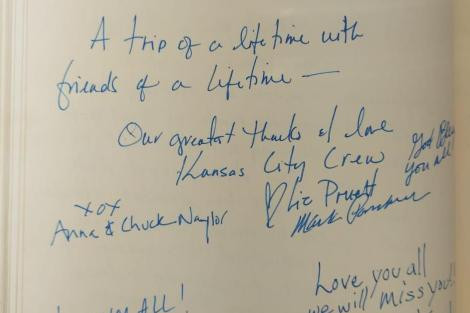 A trip of a lifetime with
friends of a lifetime —
Our greatest thanks & love
Kansas City Crew
God Bless
you all!
xox
Anna & Chuck Naylor
♡ Liz Pruett
Mark
Love you all
we will miss you!!
ALL!